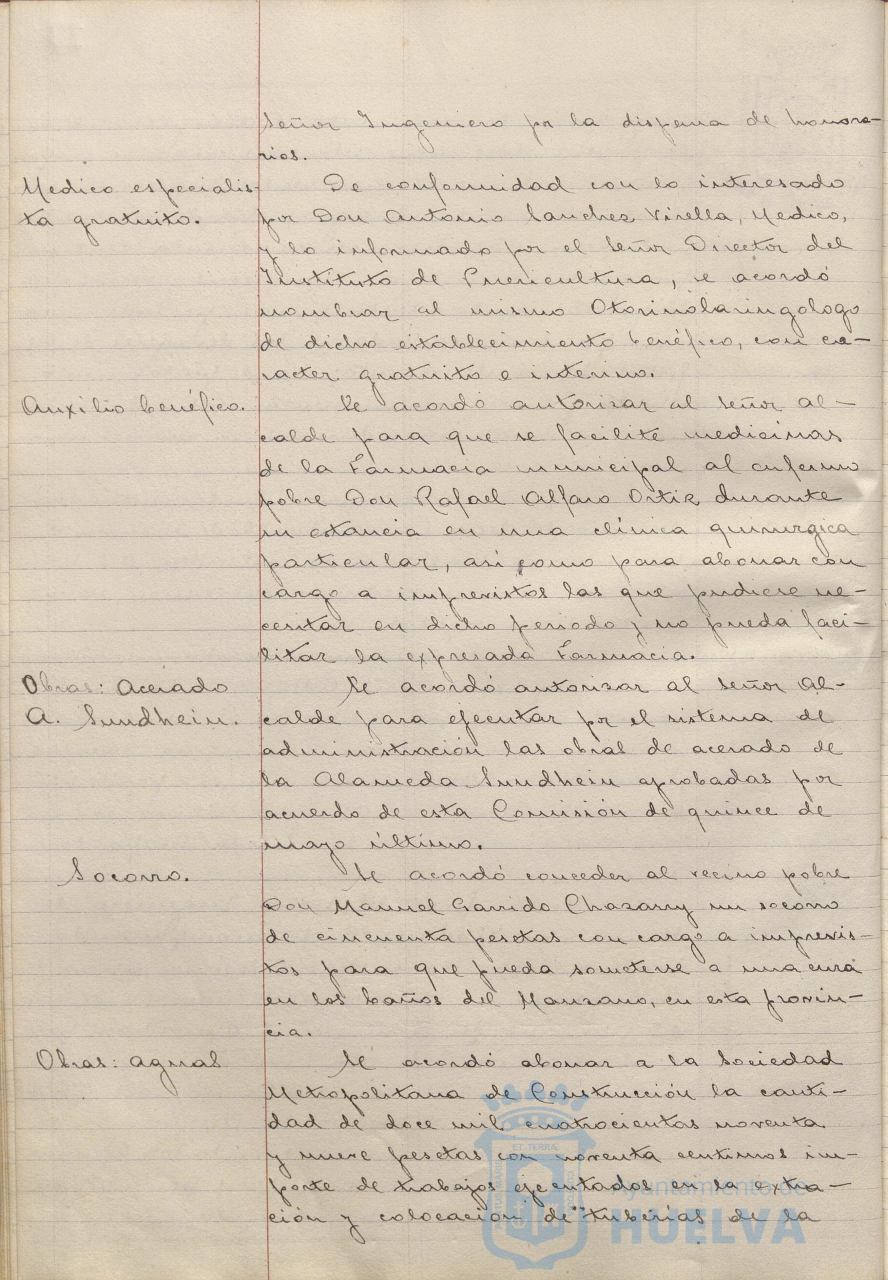 Señor Ingeniero por la dispensa de honora-
rios.
Medico especialis-
ta gratuito.
De conformidad con lo interesado
por Don Antonio Sanchez Virella, Medico,
y lo informado por el Señor Director del
Instituto de Puericultura, se acordó
nombrar al mismo Otorinolaringólogo
de dicho establecimiento benéfico, con ca-
racter gratuito e interino.
Auxilio benéfico.
Se acordó autorizar al Señor Al-
calde para que se facilite medicinas
de la Farmacia municipal al enfermo
pobre Don Rafael Alfaro Ortiz durante
su estancia en una clínica quirurgica
particular, así como para abonar con
cargo a imprevistos las que pudiese ne-
cesitar en dicho periodo y no pueda faci-
litar la expresada Farmacia.
Obras: Acerado
A. Sundhein.
Se acordó autorizar al Señor Al-
calde para ejecutar por el sistema de
administración las obras de acerado de
la Alameda Sundhein aprobadas por
acuerdo de esta Comisión de quince de
mayo último.
Socorro.
Se acordó conceder al vecino pobre
Don Manuel Garrido Chazarry un socorro
de cincuenta pesetas con cargo a imprevis-
tos para que pueda someterse a una cura
en los baños del Manzano, en esta provin-
cia.
Obras: aguas
Se acordó abonar a la Sociedad
Metropolitana de Construcción la canti-
dad de doce mil cuatrocientas noventa
y nueve pesetas con noventa centimos im-
porte de trabajos ejecutados en la extra-
ción y colocación de tuberías de la
Ayuntamiento de
HUELVA